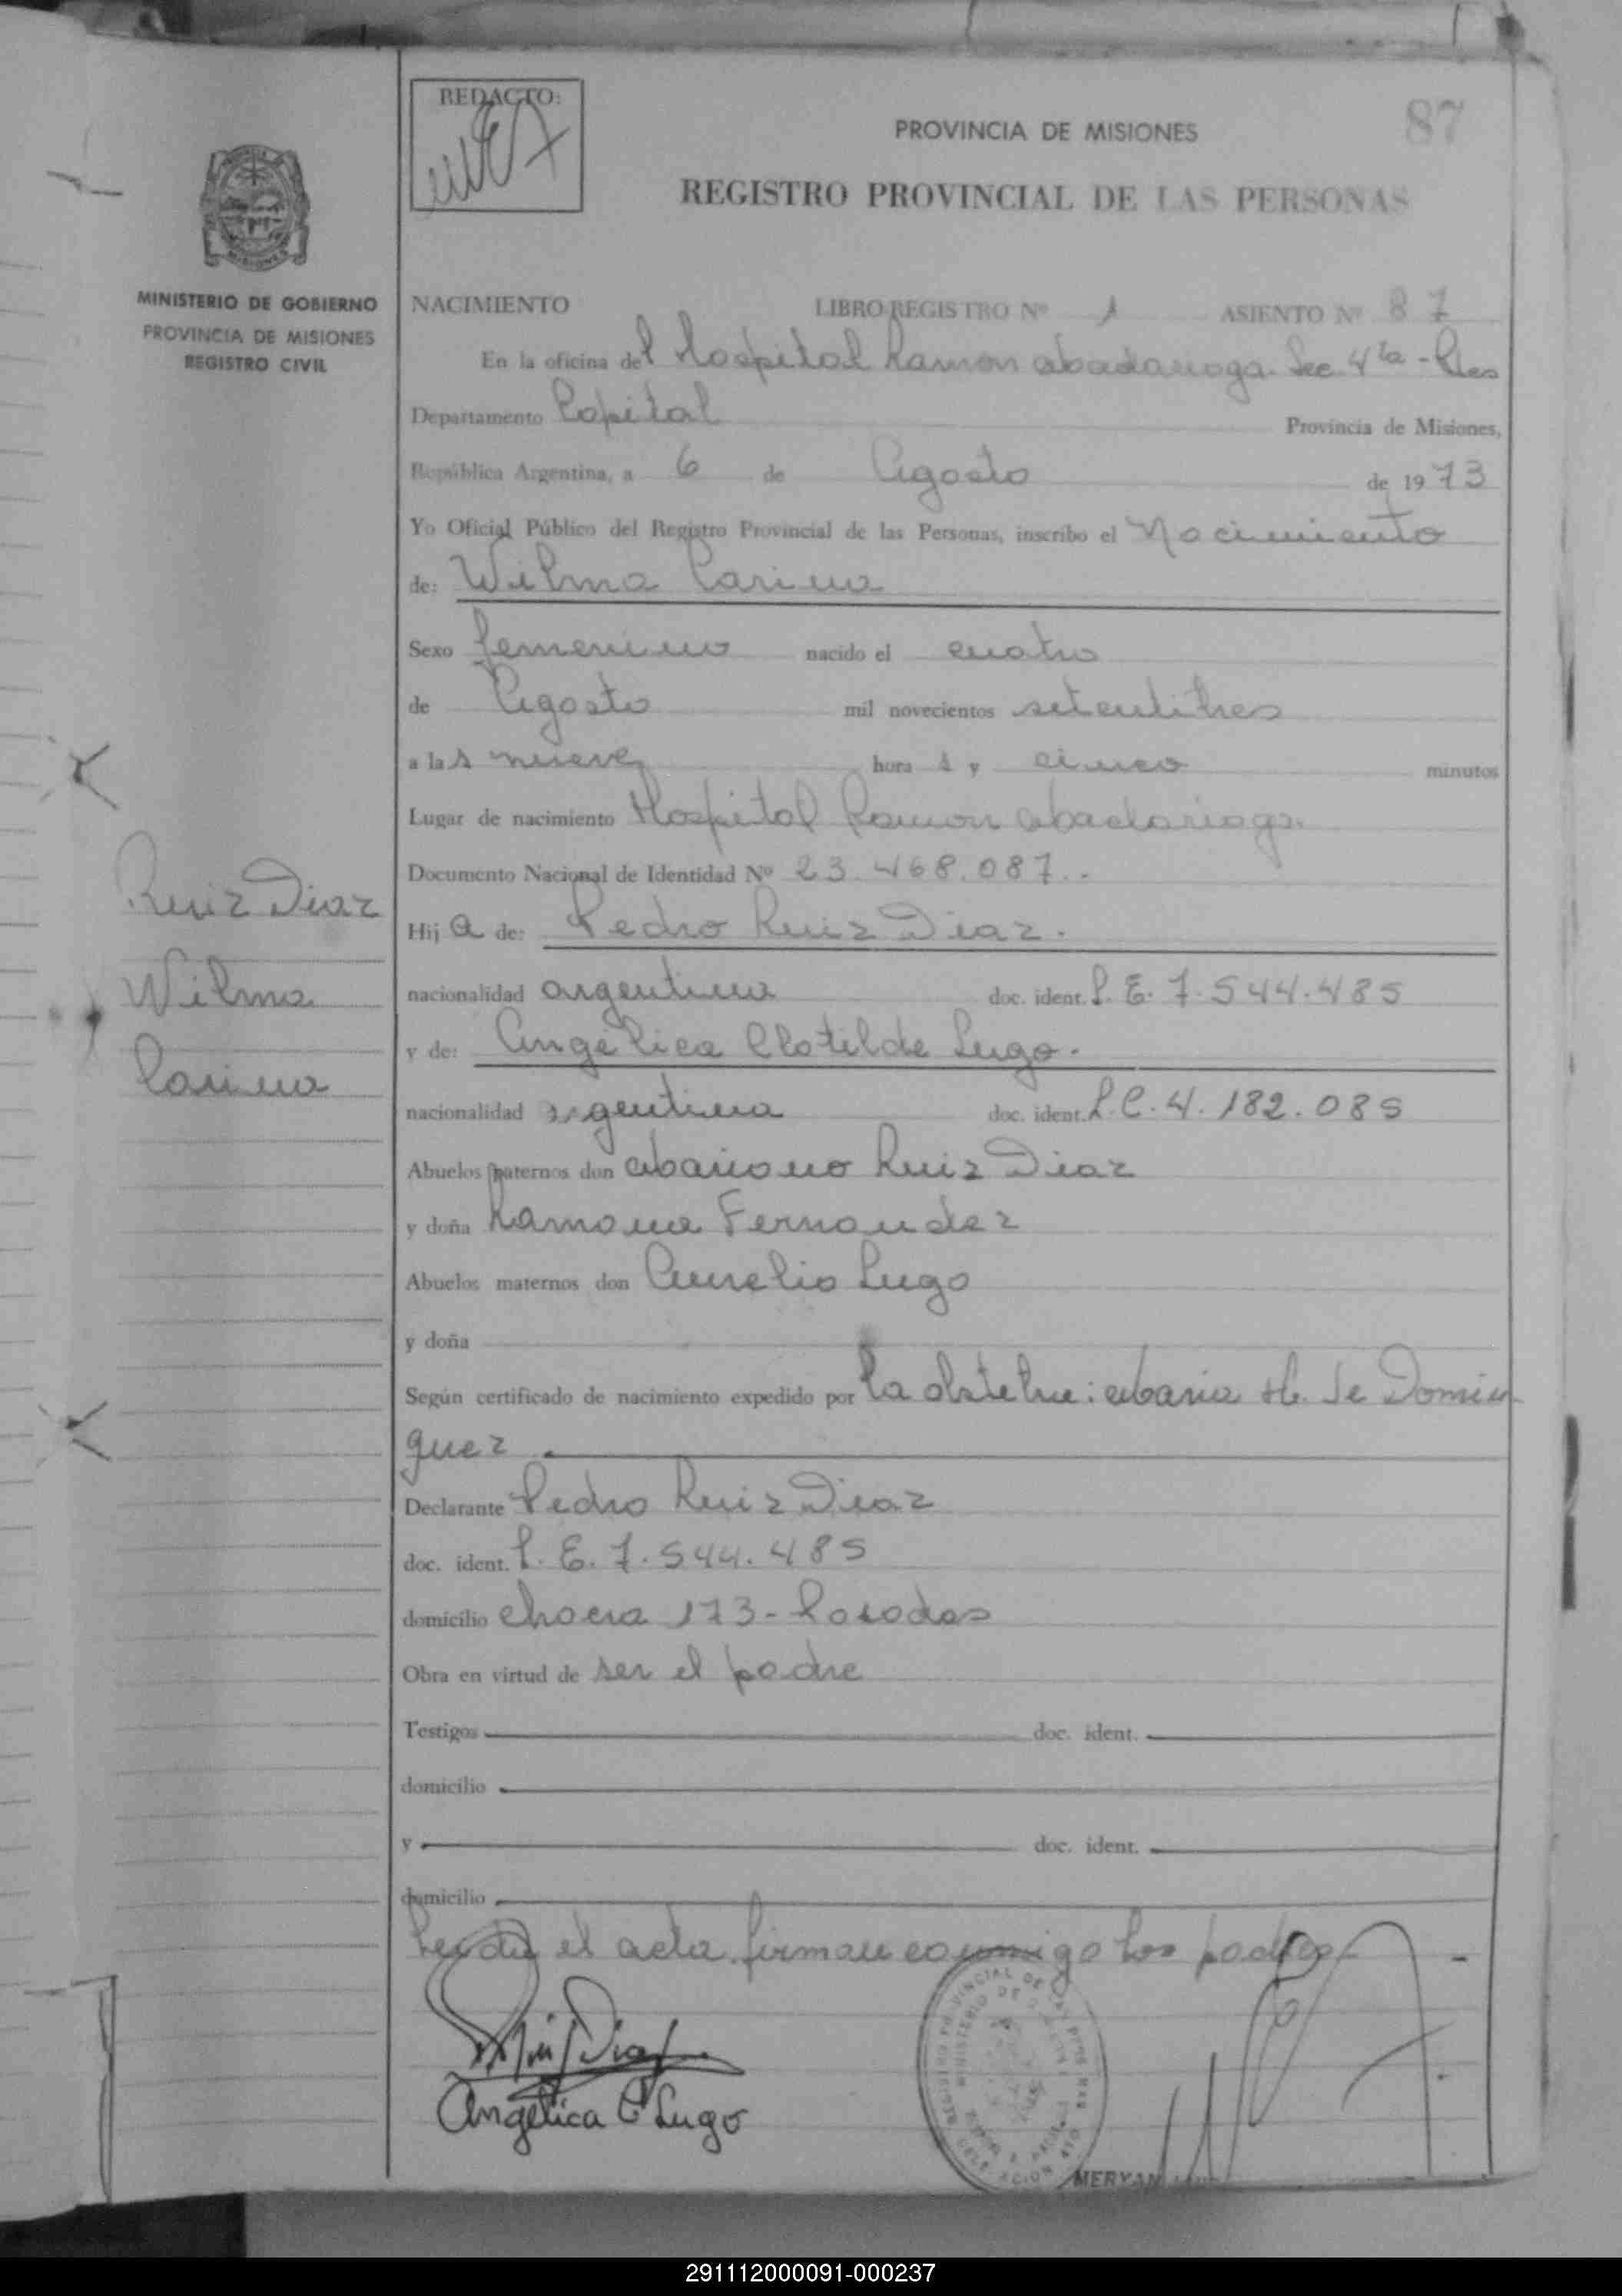 REDACTO:
PROVINCIA DE MISIONES
87
REGISTRO PROVINCIAL DE LAS PERSONAS
MINISTERIO DE GOBIERNO
PROVINCIA DE MISIONES
REGISTRO CIVIL
NACIMIENTO LIBRO REGISTRO Nº 1 ASIENTO Nº 87
En la oficina del Hospital Ramon Madariaga. Sec. 4ta -
Departamento Capital Provincia de Misiones,
República Argentina, a 6 de Agosto de 1973
Yo Oficial Público del Registro Provincial de las Personas, inscribo el Nacimiento
de: Wilma Carina
Sexo femenino nacido el cuatro
de Agosto mil novecientos setentitres
a las nueve horas y cinco minutos
Lugar de nacimiento Hospital Ramon Madariaga.
Documento Nacional de Identidad Nº 23.468.087..
Ruiz Diaz
Wilma
Carina
Hija de: Pedro Ruiz Diaz.
nacionalidad argentina doc. ident. L.E. 7.544.485
y de: Angelica Clotilde Lugo.
nacionalidad argentina doc. ident. L.C. 4.182.085
Abuelos paternos don Mariano Ruiz Diaz
y doña Ramona Fernandez
Abuelos maternos don Aurelio Lugo
y doña
Según certificado de nacimiento expedido por La obstetra: Maria H. de Domin
guez.
Declarante Pedro Ruiz Diaz
doc. ident. L.E. 7.544.485
domicilio Chacra 173 - Posadas
Obra en virtud de ser el padre
Testigos doc. ident.
domicilio
y doc. ident.
domicilio
Leida el acta firman conmigo los padres -
Ruiz Diaz
Angelica C Lugo
MERYAN
291112000091-000237